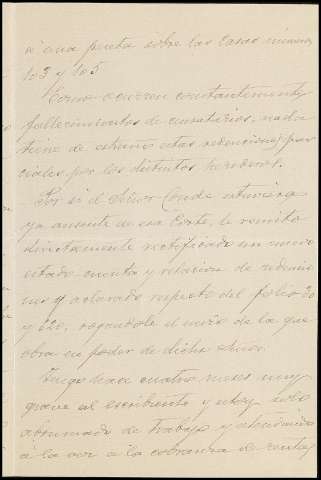 á una puerta sobre las Casas números
103 y 105.
Como ocurren constantemente
fallecimientos de censatarios, nada
tiene de estraño estas redenciones par
ciales por los distintos herederos.
Por si el Señor Conde estuviera
ya ausente de esa Corte, le remito
directamente rectificado un nuevo
estado cuenta y relacion de redencio
nes y aclarado respecto del folio 20
y 120, rogandole el envio de la que
obra en poder de dicho Señor.
Tengo hace cuatro meses muy
grave al escribiente y estoy solo
abrumado de trabajo y atendiendo
á la vez á la cobranza de rentas